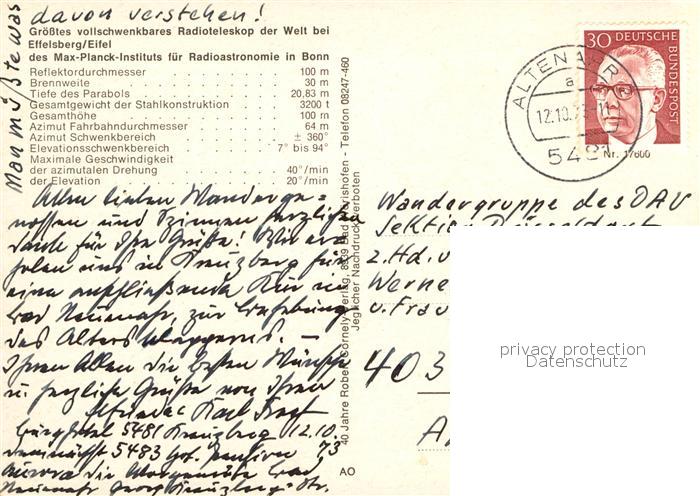 davon verstehen!
Man müßte was
Größtes vollschwenkbares Radioteleskop der Welt bei
Effelsberg/Eifel
des Max-Planck-Instituts für Radioastronomie in Bonn
Reflektordurchmesser 100 m
Brennweite 30 m
Tiefe des Parabols 20,83 m
Gesamtgewicht der Stahlkonstruktion 3200 t
Gesamthöhe 100 m
Azimut Fahrbahndurchmesser 64 m
Azimut Schwenkbereich ± 360°
Elevationsschwenkbereich 7° bis 94°
Maximale Geschwindigkeit
der azimutalen Drehung 40°/min
der Elevation 20°/min
Allen lieben Wanderge=
nossen und herzlichen
Dank für Ihre Grüße! Wir er
holen uns in Kreuzberg für
eine anschließende Kur in
Bad Neuenahr, zur
des Alters . —
Ihnen Allen die besten Wünsche
u. herzliche Grüße von Ihrem
Karl
5481 Kreuzberg 12.10.
5483 73
Bad
Neuenahr Georg Kreuzberg-Str.
40 Jahre Robert Cornely Verlag, 8939 Bad Wörishofen - Telefon 08247-460
Jeglicher Nachdruck verboten
AO
30 DEUTSCHE
BUNDESPOST
ALTENAHR
a
12.10.73-11
5481
Nr. 17600
Wandergruppe des DAV
Sektion Düsseldorf
z.Hd. v
Werne
u. Frau
403
privacy protection
Datenschutz